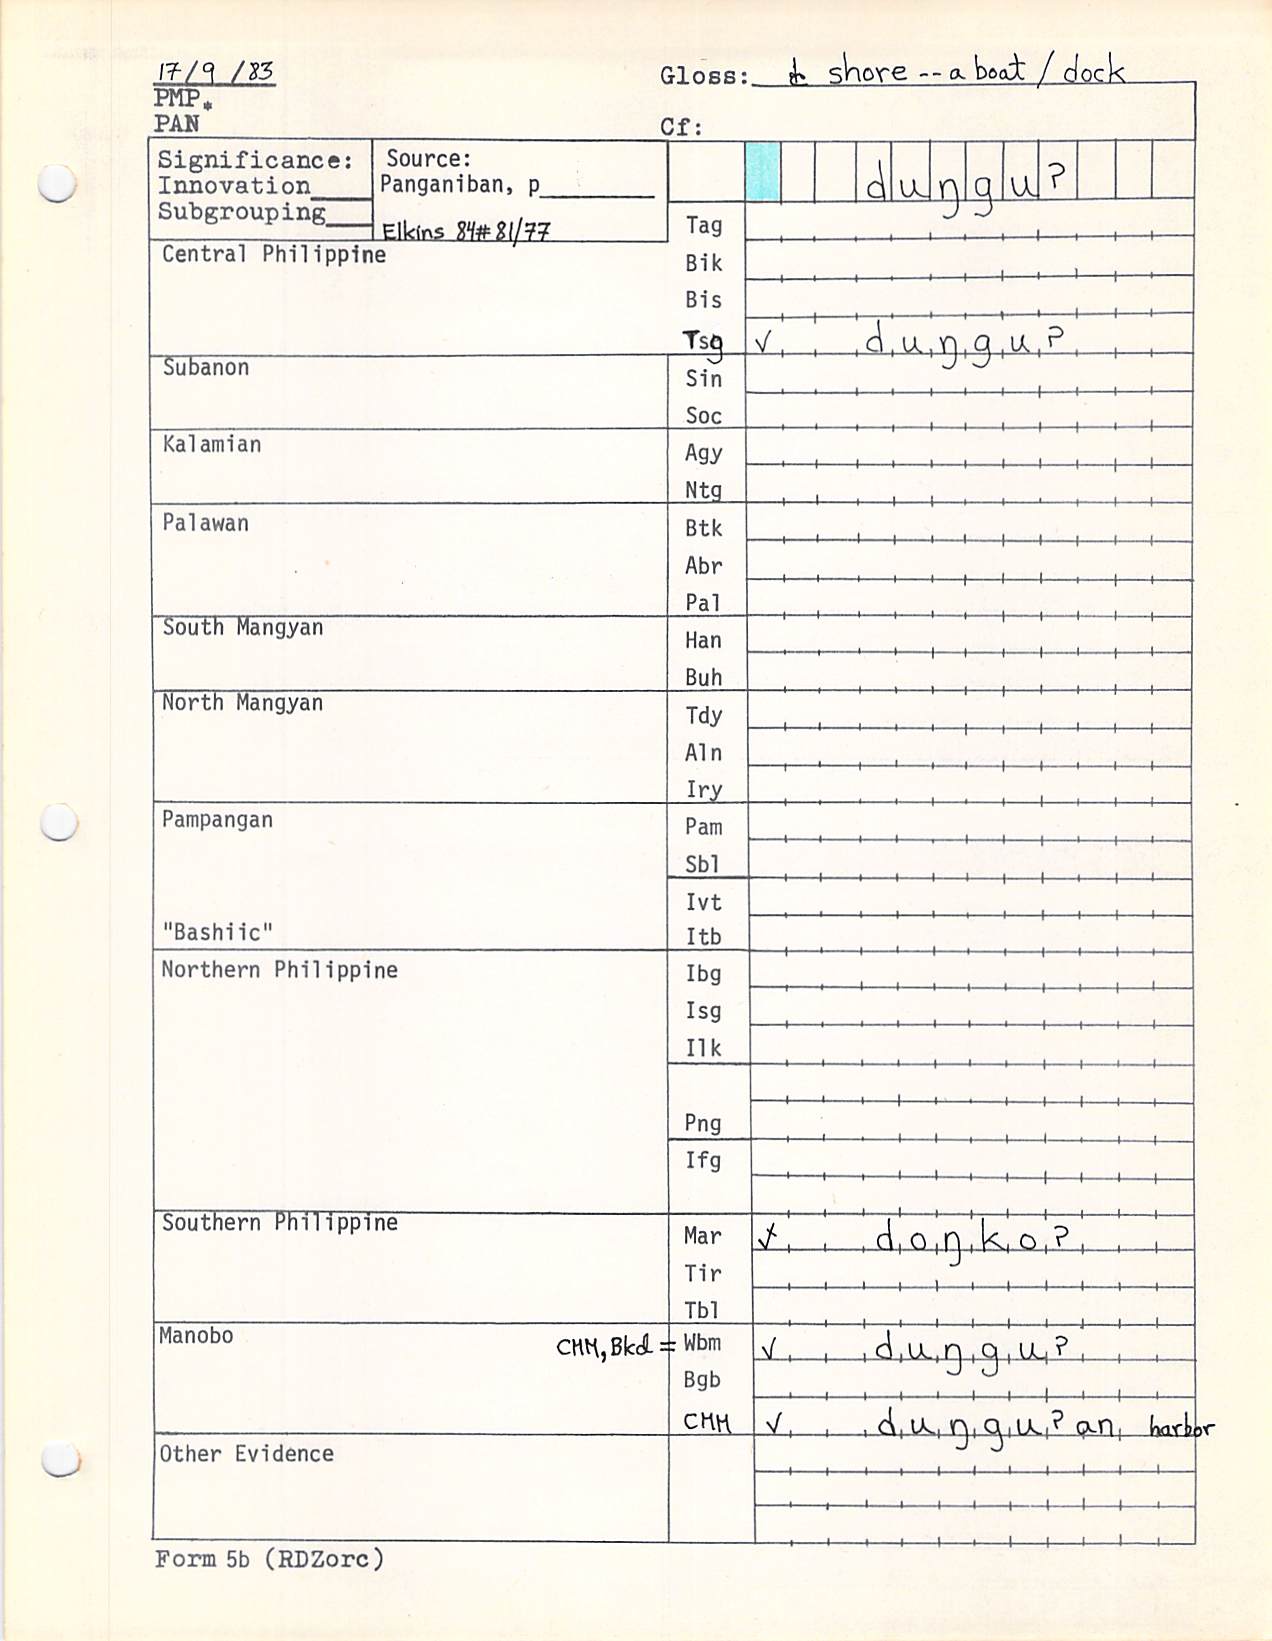 17/9/83
Gloss: shore -- a boat / dock
PMP*
PAN
Cf:
Significance:
Innovation____
Subgrouping___
Source:
Panganiban, p________
Elkins 84#81/77
duŋguʔ
Central Philippine
Tag
Bik
Bis
Tsg √ duŋguʔ
Subanon
Sin
Soc
Kalamian
Agy
Ntg
Palawan
Btk
Abr
Pal
South Mangyan
Han
Buh
North Mangyan
Tdy
Aln
Iry
Pampangan
Pam
Sbl
Ivt
"Bashiic"
Itb
Northern Philippine
Ibg
Isg
Ilk
Png
Ifg
Southern Philippine
Mar doŋkoʔ
Tir
Tbl
Manobo
CMM, Bkd = Wbm √ duŋguʔ
Bgb
CMM √ duŋguʔan harbor
Other Evidence
Form 5b (RDZorc)